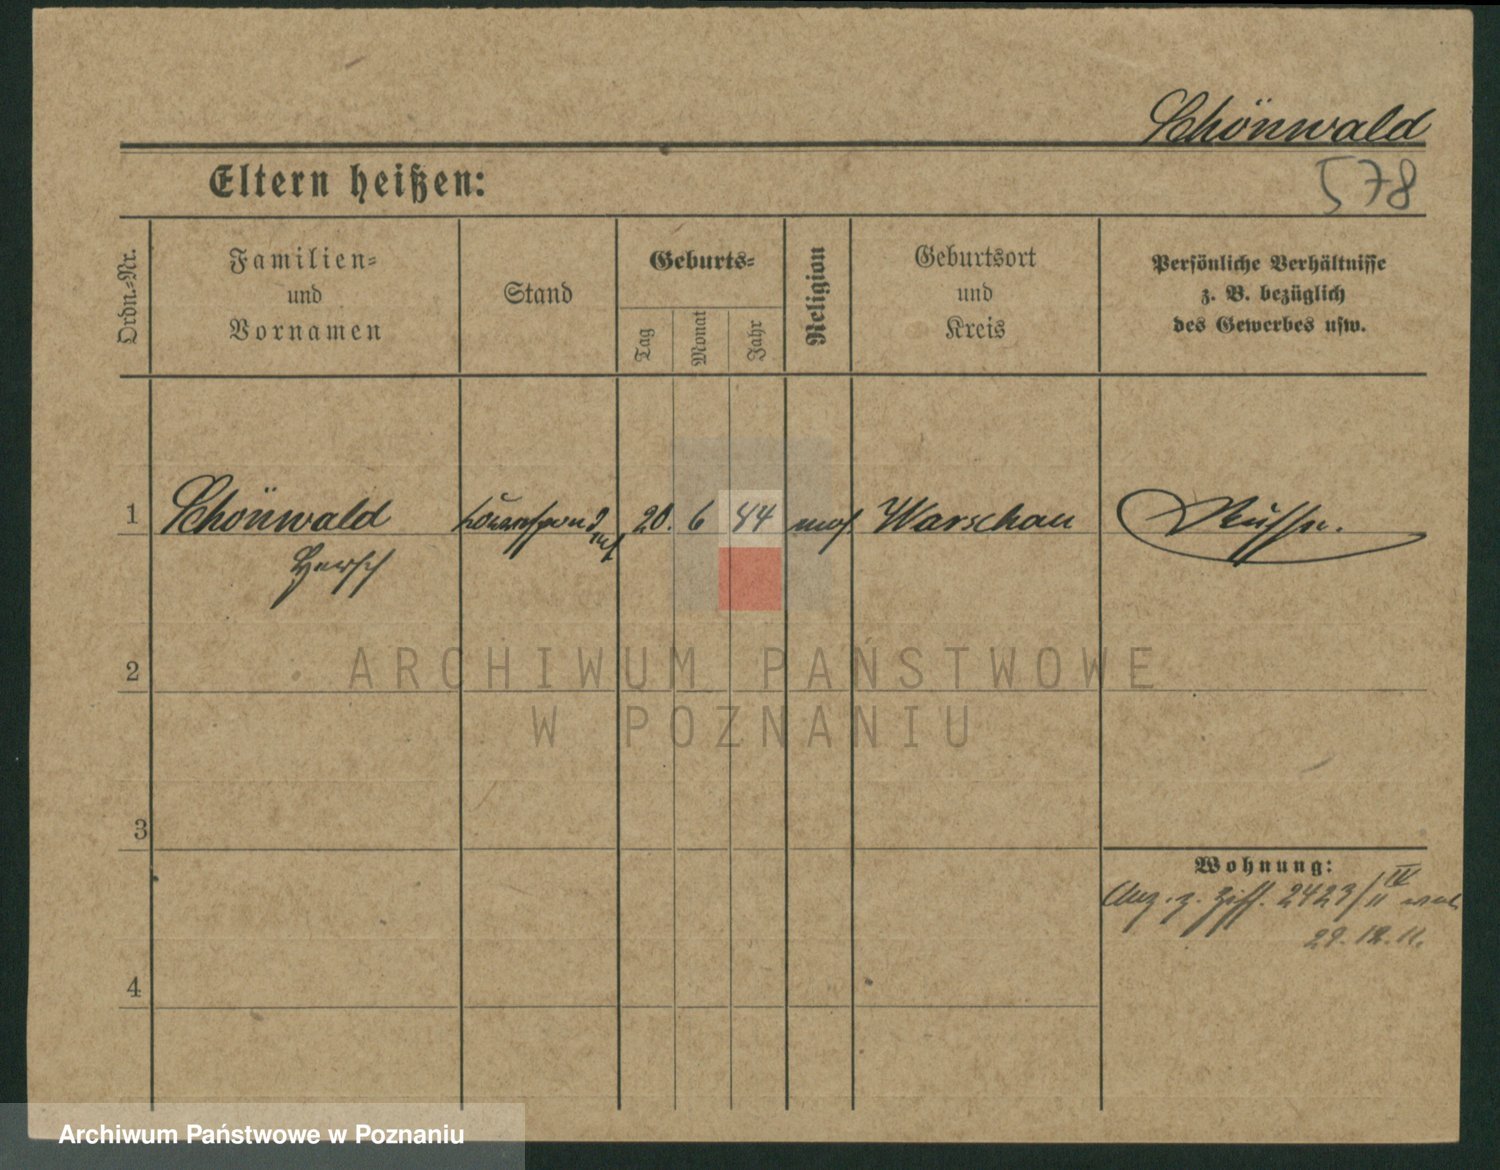 Schönwald
Eltern heißen:
578
Ordn.-Nr.
Familien-
und
Vornamen
Stand
Geburts-
Tag
Monat
Jahr
Religion
Geburtsort
und
Kreis
Persönliche Verhältnisse
z. B. bezüglich
des Gewerbes usw.
1 Schönwald 20. 6 84 mos. Warschau Russe.
Hersch
ARCHIWUM PAŃSTWOWE
W POZNANIU
2
3
4
Wohnung:
Anz. z. Ziff. 2423/II IV
29. 12. 11.
Archiwum Państwowe w Poznaniu